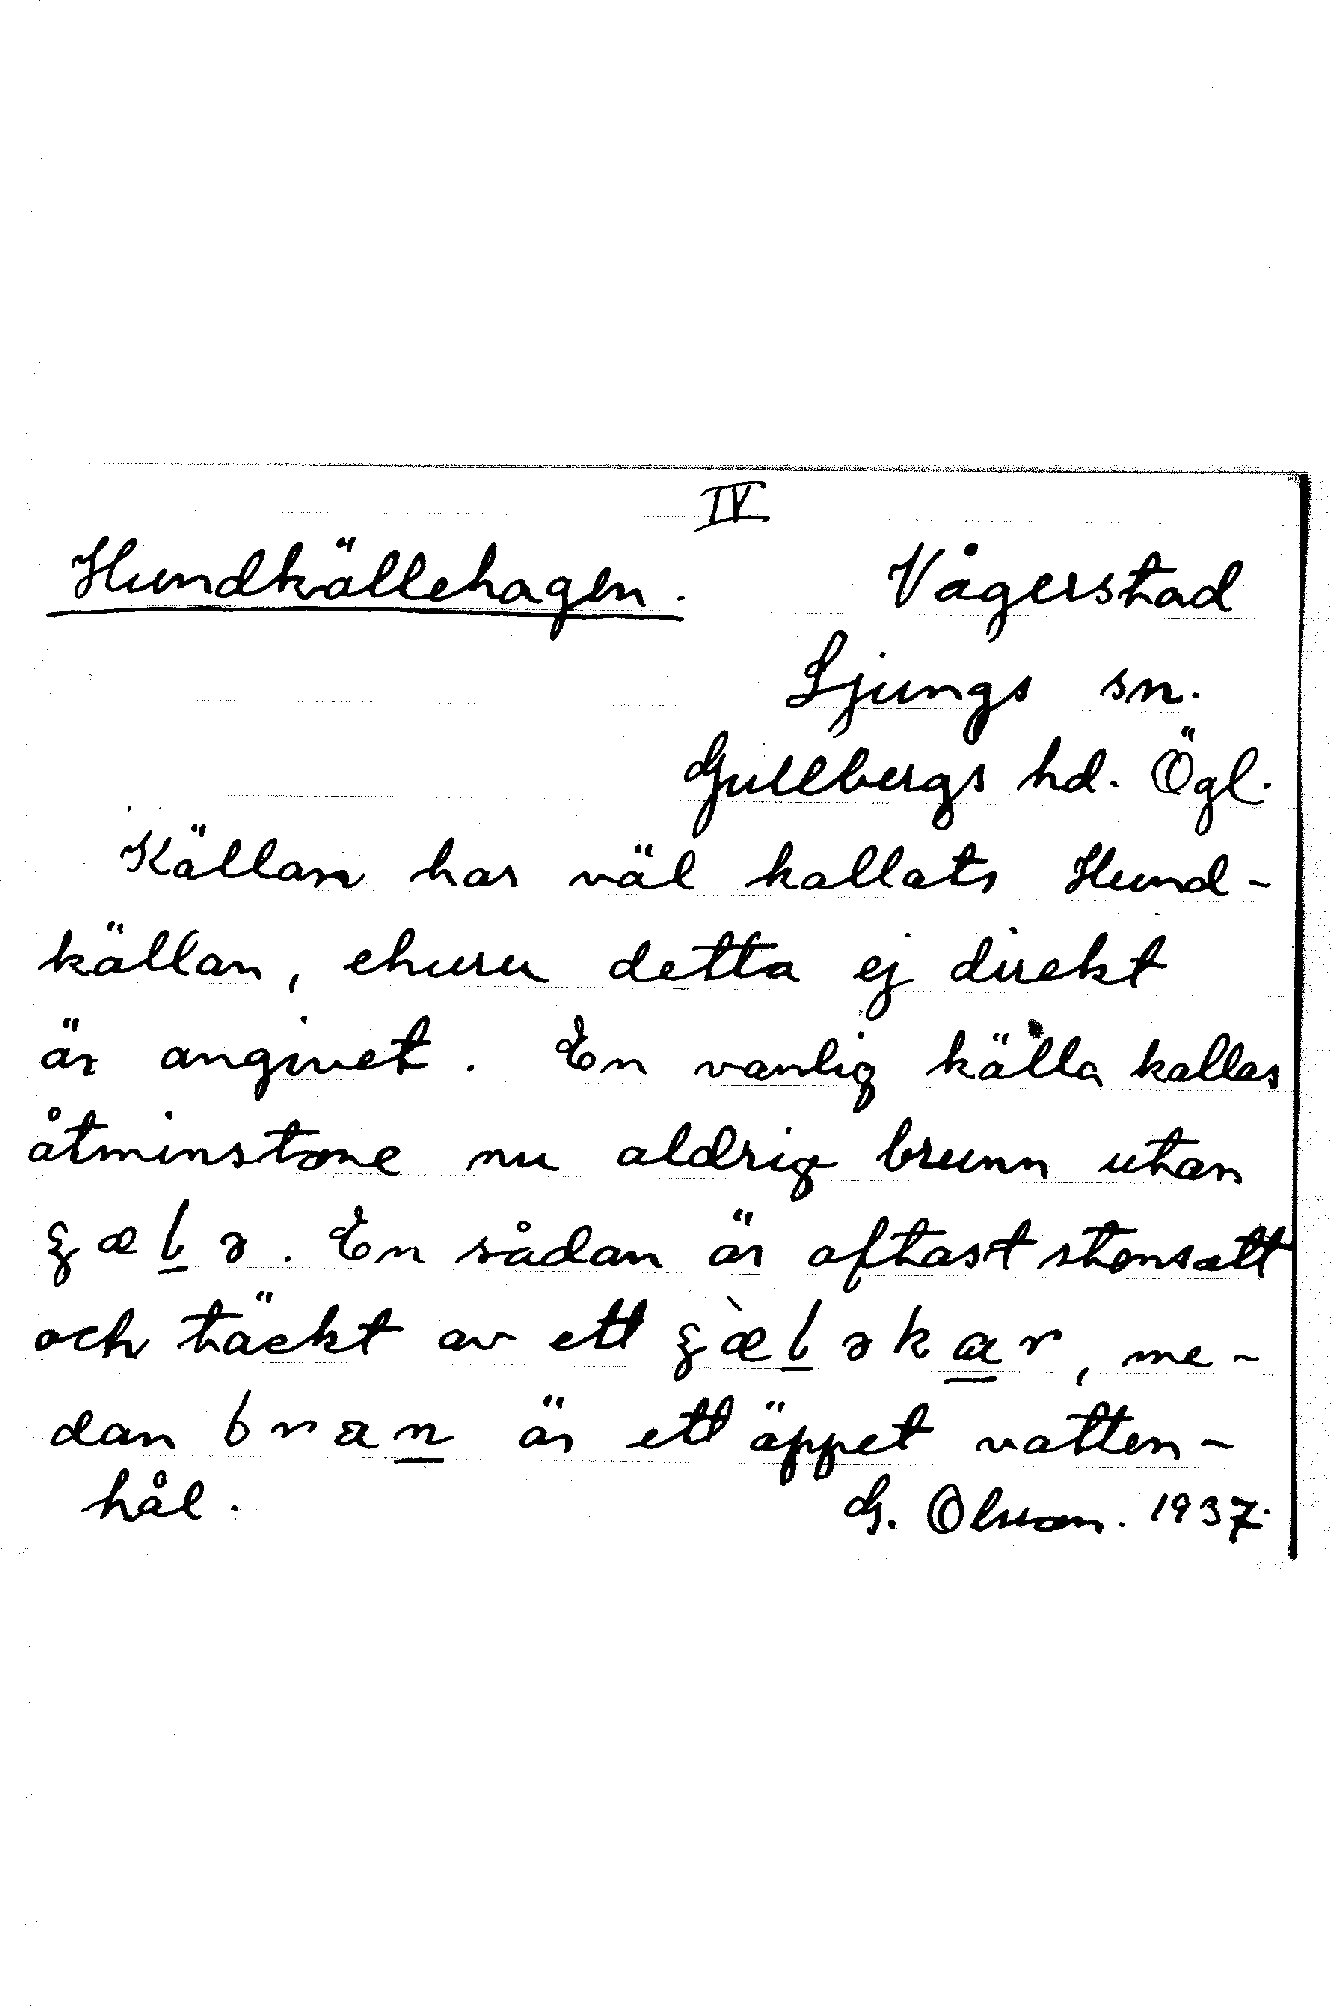 IV
Hundkällehagen. Vågerstad
Ljungs sn.
Gullbergs hd. Ögl.
Källan har väl kallats Hund-
källan, ehuru detta ej direkt
är angivet. En vanlig källa kallas
åtminstone nu aldrig brunn utan
ʒælə. En sådan är oftast stensatt
och täckt av ett ʒæ̀ləkar, me-
dan bran är ett öppet vatten-
hål. G. Olsson. 1937.